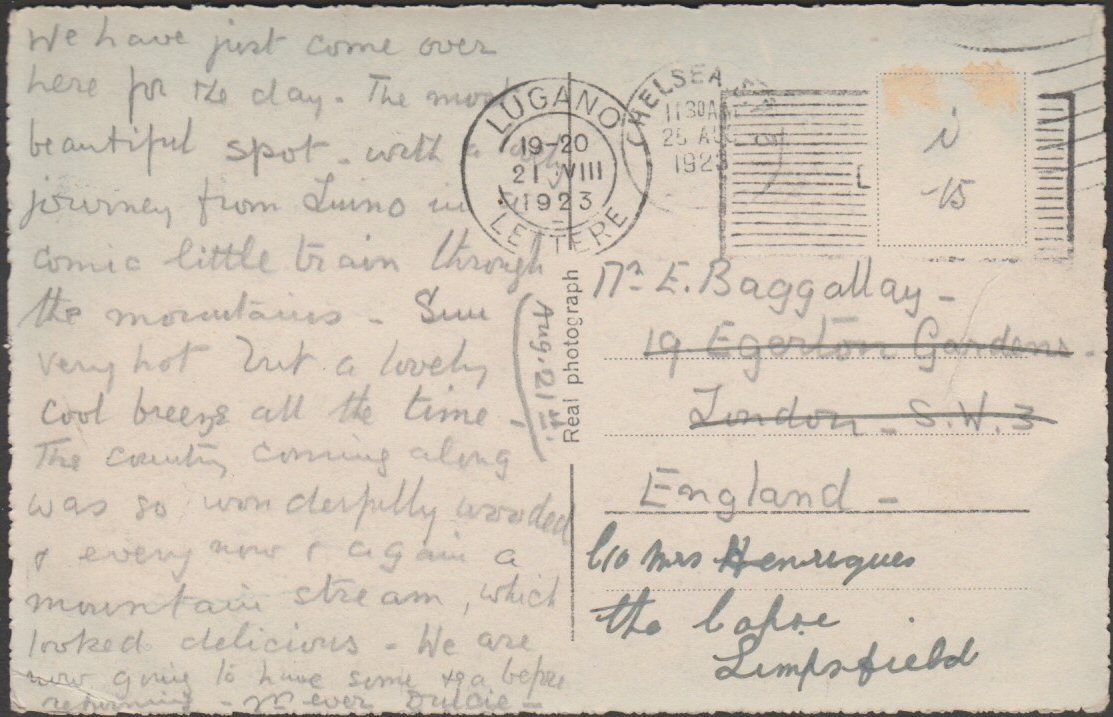 We have just come over
here for the day. The most
beautiful spot - with a
journey from Luino in
comic little train through
the mountains - Sun
very hot but a lovely
cool breeze all the time -
The country coming along
was so wonderfully wooded
& every now & again a
mountain stream, which
looked delicious - We are
now going to have some tea before
returning - Yr ever Dulcie -
Aug. 21st.
Real photograph
LUGANO
19-20
21 VIII
1923
LETTERE
CHELSEA
11 30 AM
25 AUG
1923
i
-15
E. Baggallay -
19 Egerton Gardens -
London - S.W.3
England -
c/o Mrs Henriques
the Copse
Limpsfield